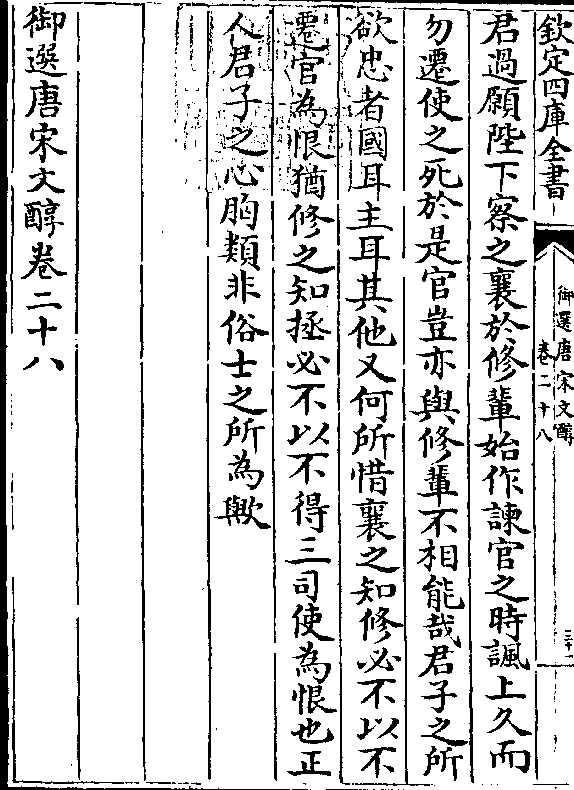 欽定四庫全書
御選唐宋文醇
卷二十八
三十一
君過願陛下察之襄於修輩始作諫官之時諷上久而
勿遷使之死於是官豈亦與修輩不相能哉君子之所
欲忠者國耳主耳其他又何所惜襄之知修必不以不
遷官為恨猶修之知拯必不以不得三司使為恨也正
人君子之心胸類非俗士之所為歟
御選唐宋文醇卷二十八